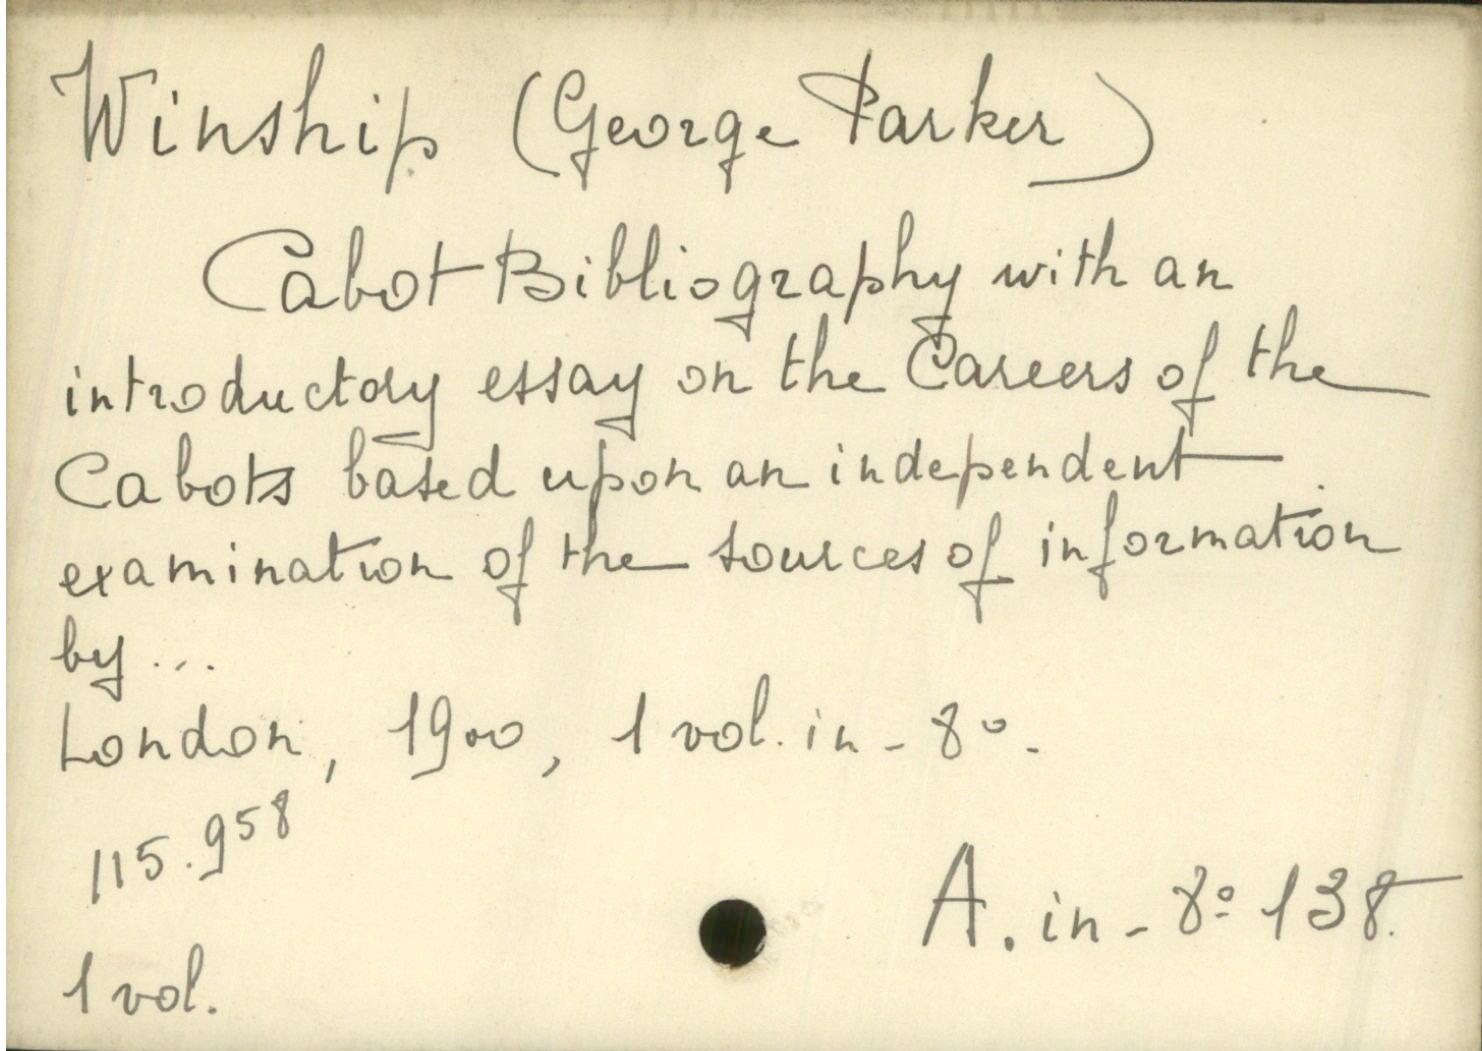 Winship (George Parker)
Cabot Bibliography with an
introductory essay on the Careers of the
Cabots based upon an independent
examination of the sources of information
by ...
London, 1900, 1 vol. in-8º.
115.958
A. in-8º 138.
1 vol.